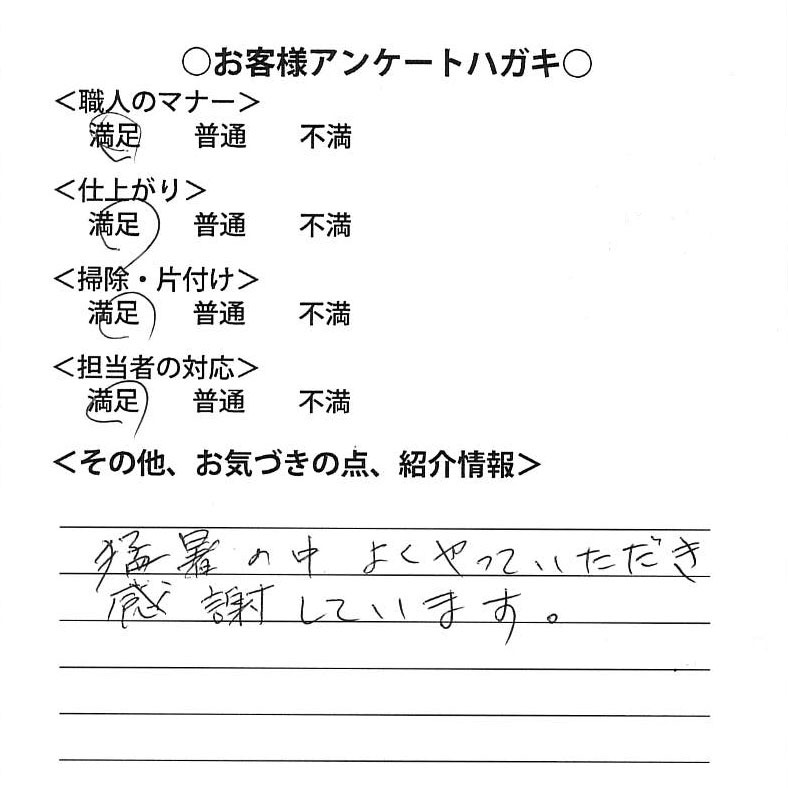 ○お客様アンケートハガキ○
＜職人のマナー＞
満足 普通 不満
＜仕上がり＞
満足 普通 不満
＜掃除・片付け＞
満足 普通 不満
＜担当者の対応＞
満足 普通 不満
＜その他、お気づきの点、紹介情報＞
猛暑の中 よくやっていただき
感謝しています。